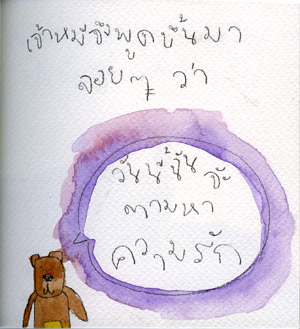 เจ้าหมีจึงพูดขึ้นมา
ลอยๆ ว่า
วันนี้ฉันจะ
ตามหา
ความรัก